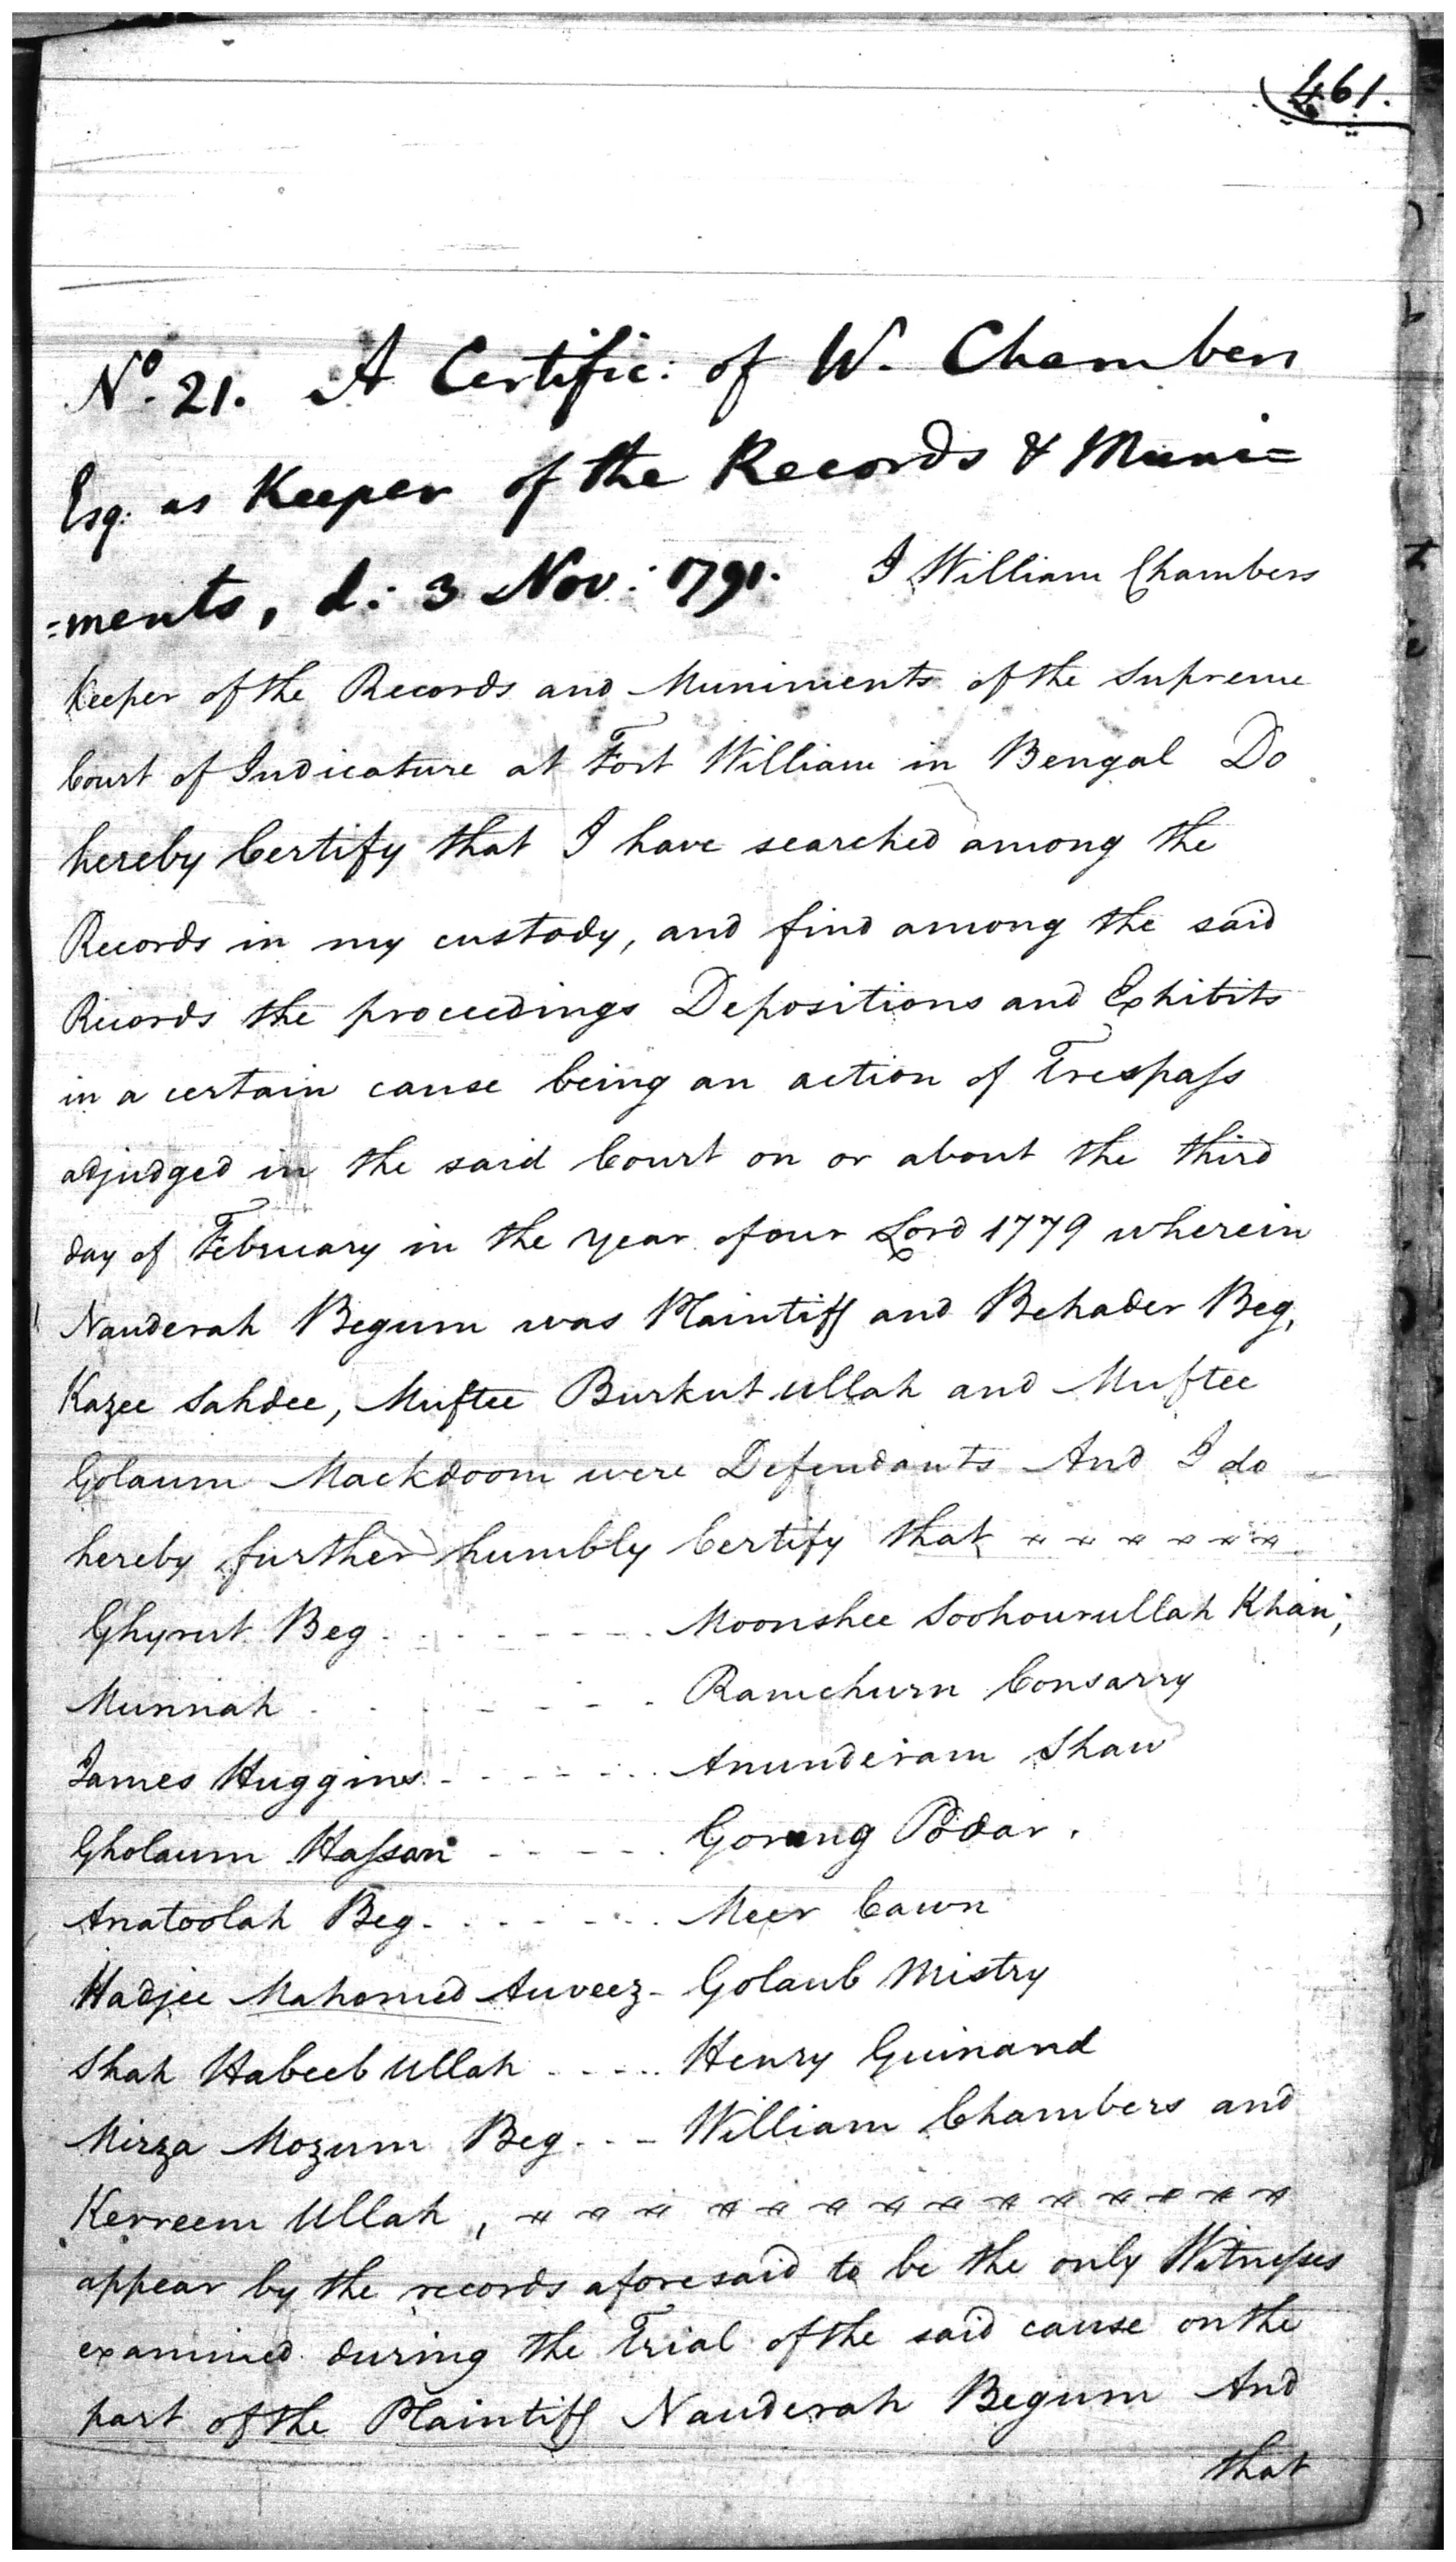 461.
No. 21. A Certific: of W. Chambers
Esq: as Keeper of the Records & Muni=
=ments, d: 3 Nov: 1791. I William Chambers
Keeper of the Records and Muniments of the Supreme
Court of Judicature at Fort William in Bengal Do
hereby Certify that I have searched among the
Records in my custody, and find among the said
Records the proceedings Depositions and Exhibits
in a certain cause being an action of Trespass
adjudged in the said Court on or about the third
day of February in the year of our Lord 1779 wherein
Nauderah Begum was Plaintiff and Behader Beg,
Kazee Sahdee, Muftee Burkut ullah and Muftee
Golaum Mackdoom were Defendants And I do
hereby further humbly Certify that
Ghyrut Beg - - - - - - Moonshee Soohourullah Khan,
Munnah - - - - - - Ramchurn Consarry
James Huggins - - - - - - Anunderam Shaw
Gholaum Hassan - - - - Gorung Podar.
Anatoolah Beg - - - - - - Meer Cawn
Hadjee Mahomed Auveez - Golaub Mistry
Shah Habeeb Ullah - - - - Henry Guinand
Mirza Mozum Beg - - - William Chambers and
Kerreem Ullah,
appear by the records aforesaid to be the only Witnesses
examined during the Trial of the said cause on the
part of the Plaintiff Nauderah Begum And
that